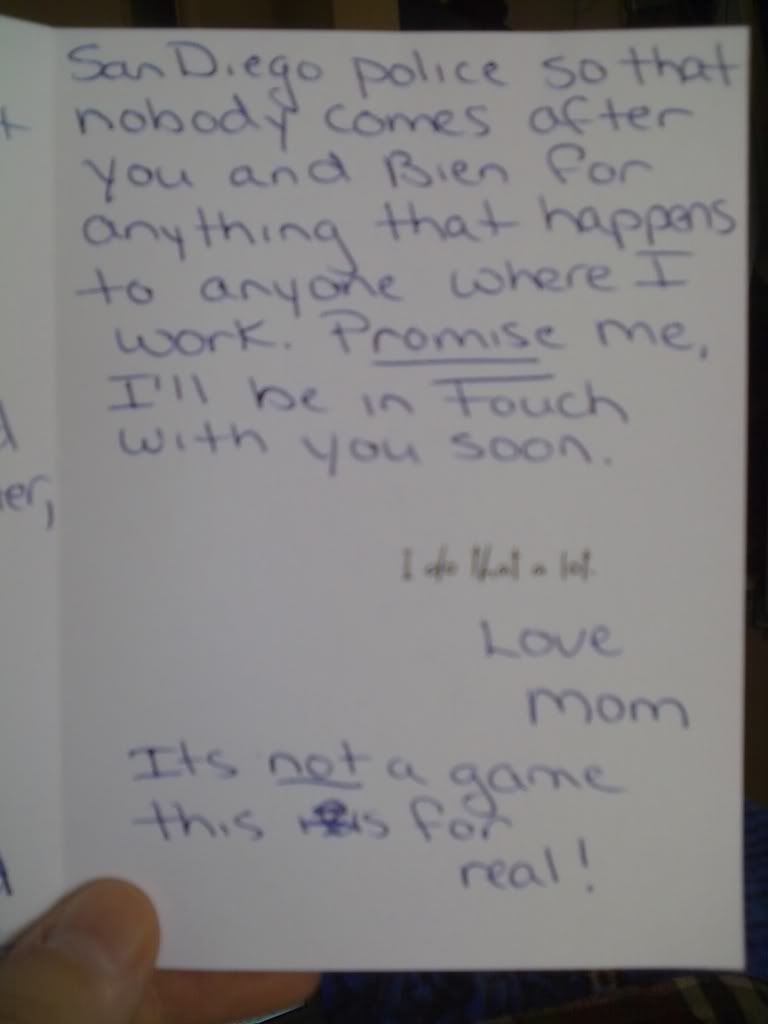 San Diego police so that
nobody comes after
you and Bien for
anything that happens
to anyone where I
work. Promise me,
I'll be in Touch
with you soon.
I do that a lot.
Love
mom
Its not a game
this is for
real!
er,